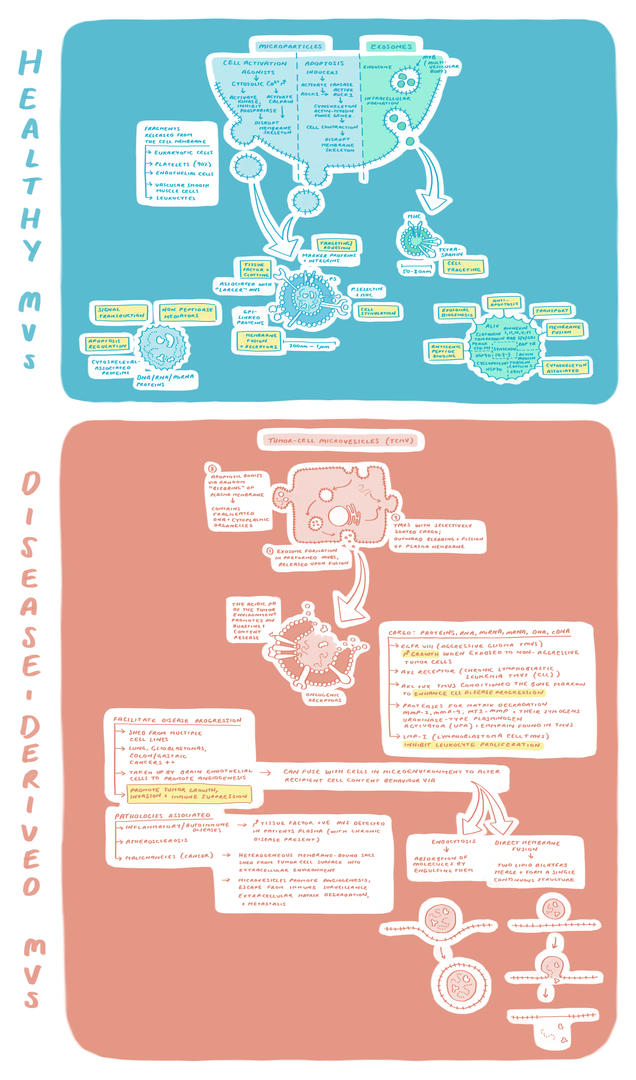 HEALTHY MVs
MICROPARTICLES
EXOSOMES
CELL ACTIVATION
AGONISTS
CYTOSOLIC Ca²⁺
ACTIVATE
KINASE,
INHIBIT
PHOSPHATASE
ACTIVATE
CALPAIN
DISRUPT
MEMBRANE
SKELETON
APOPTOSIS
INDUCERS
ACTIVATE CASPASE
ROCK1 → ACTIVE
ROCK1
CYTOSKELETON
ACTIN-MYOSIN
CELL CONTRACTION
DISRUPT
MEMBRANE
SKELETON
ENDOSOME
MVB
(MULTI-
VESICULAR
BODY)
INTRACELLULAR
FORMATION
FRAGMENTS
RELEASED FROM
THE CELL MEMBRANE
→ EUKARYOTIC CELLS
→ PLATELETS (90%)
→ ENDOTHELIAL CELLS
→ VASCULAR SMOOTH
MUSCLE CELLS
→ LEUKOCYTES
MHC
TETRA-
SPANIN
50-80nm
CELL
TARGETING
TARGETING/
ADHESION
MARKER PROTEINS
+ INTEGRINS
TISSUE
FACTOR +
CLOTTING
ASSOCIATED WITH
"LARGER" MVs
PS
P.SELECTIN
+ MHC
CELL
STIMULATION
GPI-
LINKED
PROTEINS
MEMBRANE
FUSION
+ RECEPTORS
200nm - 1μm
SIGNAL
TRANSDUCTION
NON PEPTIDASE
MEDIATORS
APOPTOSIS
REGULATION
CYTOSKELETAL-
ASSOCIATED
PROTEINS
DNA/RNA/mRNA
PROTEINS
ANTI-
APOPTOSIS
EXOSOMAL
BIOGENESIS
TRANSPORT
MEMBRANE
FUSION
ANTIGENIC
PEPTIDE
BINDING
CYTOSKELETON
ASSOCIATED
ALIX
ANNEXIN
CLATHRIN
DISEASE-DERIVED MVs
TUMOR-CELL MICROVESICLES (TCMV)
③ APOPTOTIC BODIES
VIA RANDOM
"BLEBBING" OF
PLASMA MEMBRANE
↓
CONTAINS
FRAGMENTED
DNA + CYTOPLASMIC
ORGANELLES
① EXOSOME FORMATION
IN PREFORMED MVBs,
RELEASED UPON FUSION
② TMVs WITH SELECTIVELY
SORTED CARGO;
OUTWARD BLEBBING + FISSION
OF PLASMA MEMBRANE
THE ACIDIC pH
OF THE TUMOR
ENVIRONMENT
PROMOTES MV
BURSTING +
CONTENT
RELEASE
ONCOGENIC
RECEPTORS
CARGO: PROTEINS, RNA, miRNA, mRNA, DNA, cDNA
→ EGFR VIII (AGGRESSIVE GLIOMA TMVs)
↗ GROWTH WHEN EXPOSED TO NON-AGGRESSIVE
TUMOR CELLS
→ AXL RECEPTOR (CHRONIC LYMPHOBLASTIC
LEUKEMIA TMVs (CLL))
→ AXL +VE TMVs CONDITIONED THE BONE MARROW
TO ENHANCE CLL DISEASE PROGRESSION
→ PROTEASES FOR MATRIX DEGRADATION
MMP-2, MMP-9, MT1-MMP + THEIR ZYMOGENS
UROKINASE-TYPE PLASMINOGEN
ACTIVATOR (UPA) + EMMPRIN FOUND IN TMVs
→ LMP-1 (LYMPHOBLASTOMA CELL TMVs)
INHIBIT LEUKOCYTE PROLIFERATION
FACILITATE DISEASE PROGRESSION
→ SHED FROM MULTIPLE
CELL LINES
→ LUNG, GLIOBLASTOMAS,
COLON/GASTRIC
CANCERS ++
→ TAKEN UP BY BRAIN ENDOTHELIAL
CELLS TO PROMOTE ANGIOGENESIS
→ CAN FUSE WITH CELLS IN MICROENVIRONMENT TO ALTER
RECIPIENT CELL CONTENT BEHAVIOUR VIA
→ PROMOTE TUMOR GROWTH,
INVASION + IMMUNE SUPPRESSION
PATHOLOGIES ASSOCIATED
→ INFLAMMATORY/AUTOIMMUNE
DISEASES
→ ↗ TISSUE FACTOR +VE MVs DETECTED
IN PATIENTS PLASMA (WITH CHRONIC
DISEASE PRESENT)
→ ATHEROSCLEROSIS
→ MALIGNANCIES (CANCER)
→ HETEROGENEOUS MEMBRANE-BOUND SACS
SHED FROM TUMOR CELL SURFACE INTO
EXTRACELLULAR ENVIRONMENT
→ MICROVESICLES PROMOTE ANGIOGENESIS,
ESCAPE FROM IMMUNE SURVEILLANCE
EXTRACELLULAR MATRIX DEGRADATION,
+ METASTASIS
ENDOCYTOSIS
↓
ABSORPTION OF
MOLECULES BY
ENGULFING THEM
DIRECT MEMBRANE
FUSION
↓
TWO LIPID BILAYERS
MERGE + FORM A SINGLE
CONTINUOUS STRUCTURE